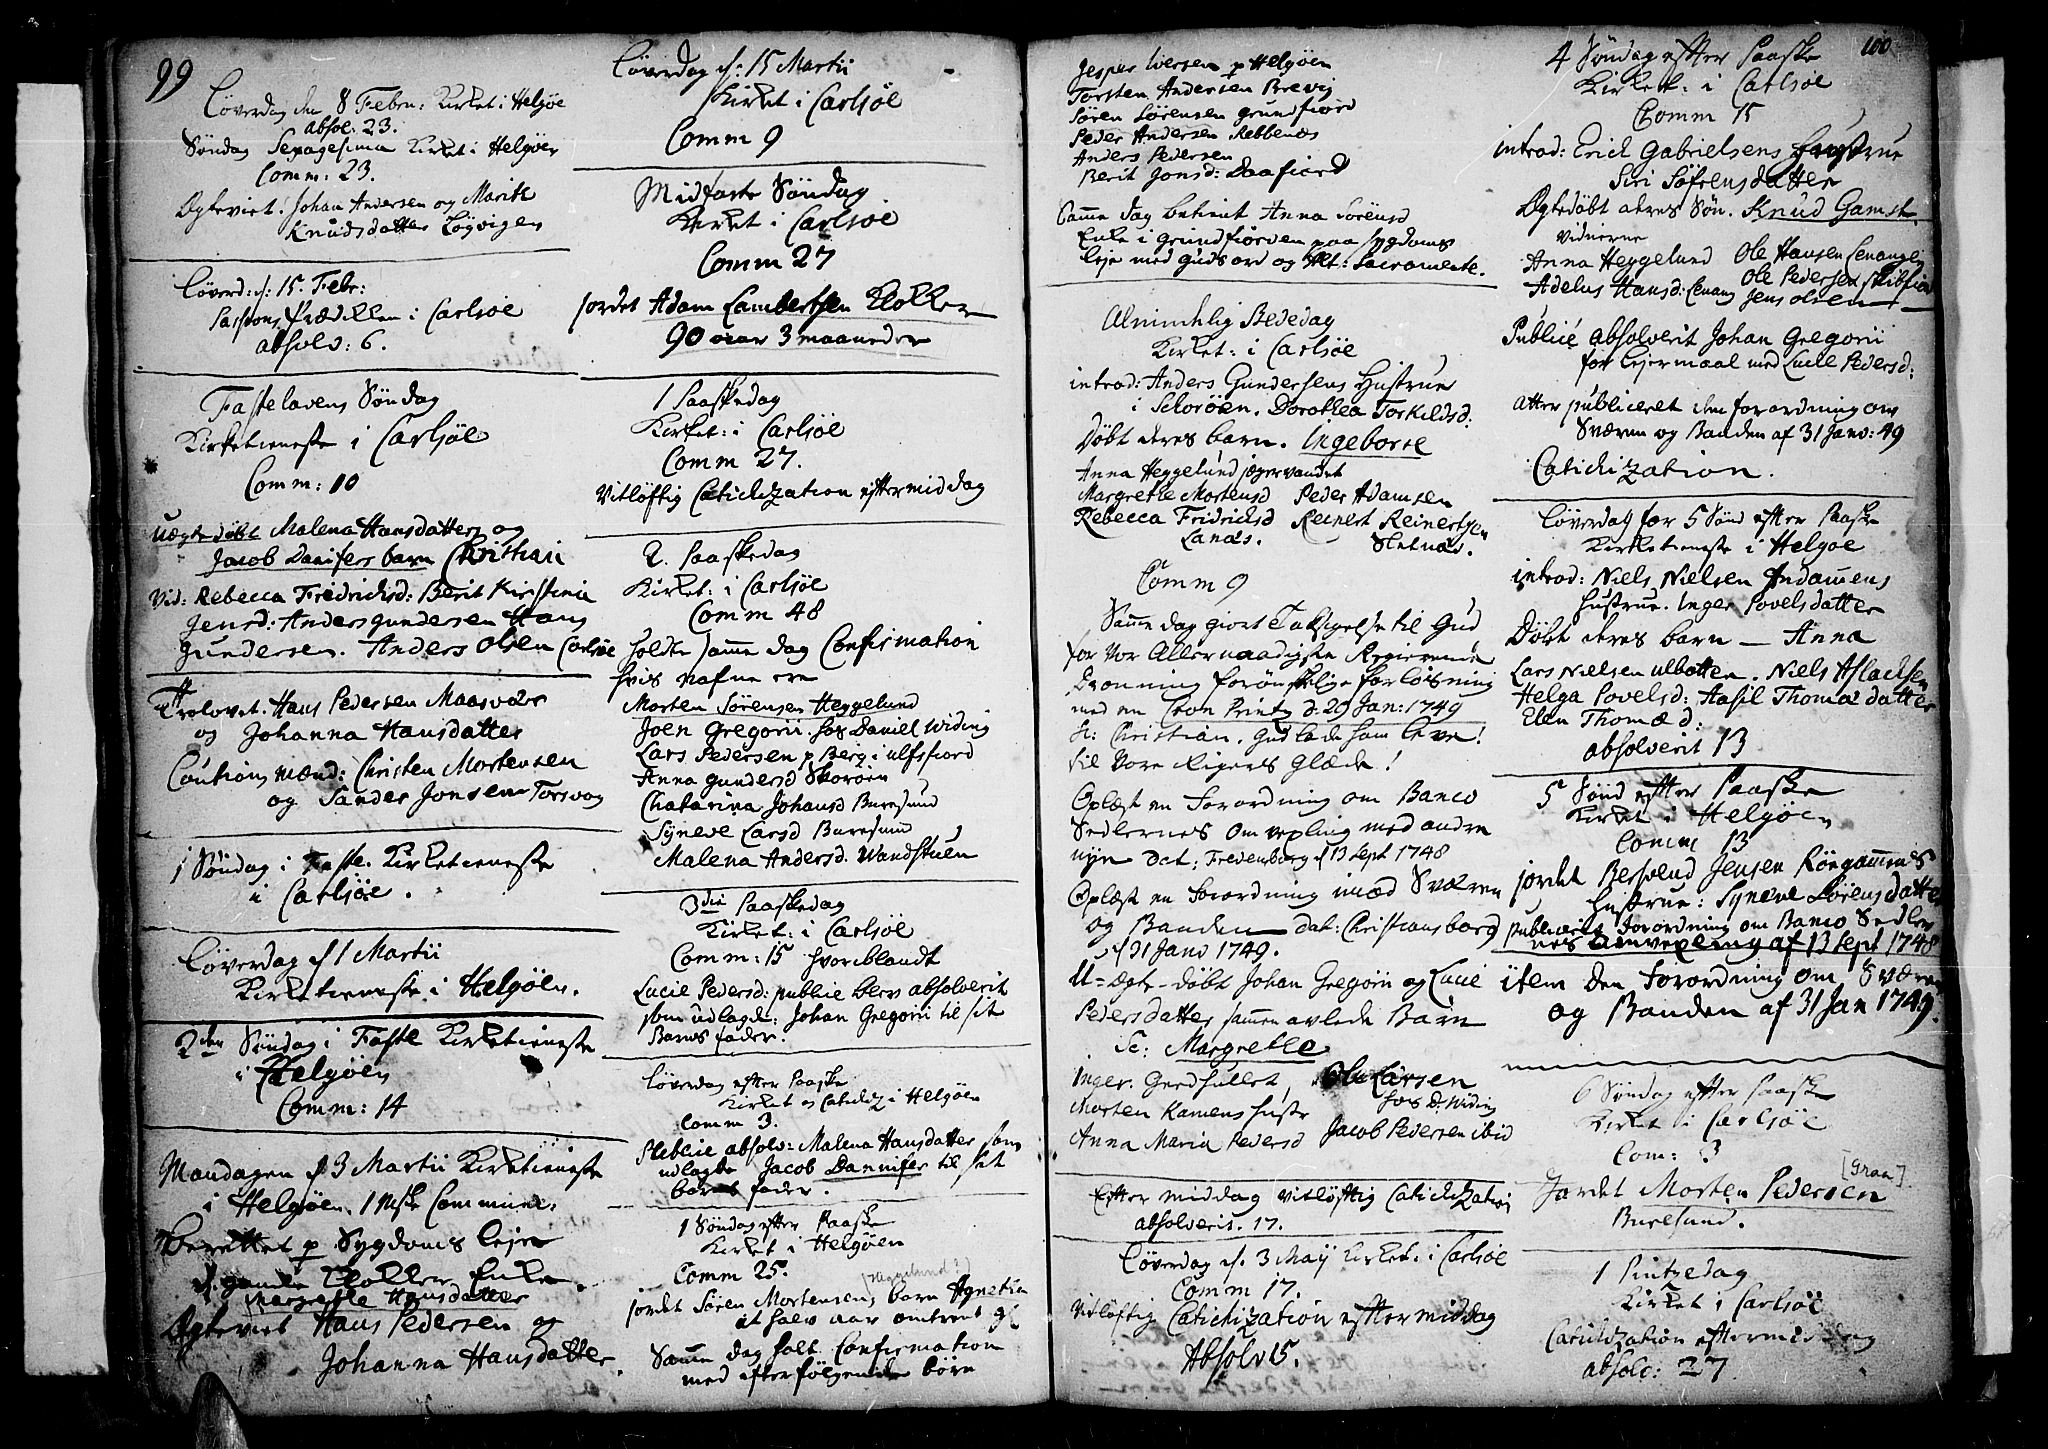 99
Løverdag den 8 Febru: Kirket: i Helgøe
absol: 23.
Søndag Sexagesima Kirket: i Helgøen
Comm: 23.
Ægteviet: Johan Andersen og Marith
Knudsdatter Løgvigen
Løverd: d: 15. Febr:
Passions prædicken i Carlsøe
absolv: 6.
Fastelavens Søndag
Kirketieneste i Carlsøe
Comm: 10
Uægte døbt Malena Hansdatters og
Jacob Danifers barn Christian
Vid: Rebecca Fredrichsd: Berit Kirstina
Jensd: Anders Gundersen Hans
Gundersen. Anders Olsen Carlsøe
Trolovet. Hans Pedersen Maasvær
og Johanna Hansdatter
Cautions mænd: Christen Mortensen
og Sander Jonsen Torsvog
1 Søndag i Faste. Kirketieneste
i Carlsøe.
Løverdag d 1 Martii
Kirketieneste i Helgøen.
2den Søndag i Faste Kirketieneste
i Helgøen
Comm: 14
Mandagen d 3 Martii Kirketieneste
i Helgøen. 1 Msk Commun:
Berettet p Sygdoms lejen
d. gamle Klokker Enke
Margrethe Hansdatter
Ægteviet Hans Pedersen og
Johanna Hansdatter
Løverdag d: 15 Martii
Kirket i Carlsøe
Comm 9
Midfaste Søndag
Kirket i Carlsøe
Comm 27
jordet Adam Lambertsen Klokker
90 aar 3 maaneder
1 Paaskedag
Kirket: i Carlsøe
Comm 27.
Vitløftig Catichization eftermiddag
2. Paaskedag
Kirket: i Carlsøe
Comm 48
holdte samme dag Confirmation
hvis nafne ere
Morten Sørensen Heggelund
Joen Gregorii. hos Daniel Widing
Lars Pedersen p Berg i ulfsfiord
Anna Gundersd Skorøen
Chatarina Johansd Buresund
Syneve Larsd Buresund
Malena Andersd. Wandstuen
3die Paaskedag
Kirket: i Carlsøe
Comm: 15 hvoriblandt
Lucie Pedersd: publice blev absolverit
som udlagde: Johan Gregorii til sit
Barns fader.
Løverdag efter Paaske
Kirket og Catichiz i Helgøen
Comm 3.
Publice absolv: Malena Hansdatter som
udlagde Jacob Dannifer til sit
barns fader.
1 Søndag efter Paaske
Kirket i Helgøen
Comm 25.
[Heggelund?]
jordet Søren Mortensens barn Agnetha
it halv aar omtrent gl
Samme dag holt Confirmation
med efterfølgende børn
Jesper Iversen p Helgøen
Torsten Andersen Brevig
Søren Sørensen Grundfiord
Peder Andersen Rebbenes
Anders Pedersen
Berit Jonsd: Daafiord
Samme dag betient Anna Sørensd
Enke i Grundfiorden paa Sygdoms
leje med Guds ord og Alt: Sacramente.
Almindelig Bededag
Kirket: i Carlsøe
introd: Anders Gundersens Hustrue
i Skorøen. Dorothea Torkildsd.
Døbt deres barn. Ingeborre
Anna Heggelund Jægervandet
Margrethe Mortensd Peder Adamsen
Rebecca Fridrichsd Reinert Reinertsen
Lanæs. Sletnæs.
Comm 9
Samme dag giort Taksigelse til Gud
for Vor Allernaadigste Regierende
Dronning forønskelige forløsning
med en Cron Printz d. 29 Jan: 1749
N: Christian. Gud lade ham leve!
til Vore Rigers Glæde!
Oplæst en Forordning om Banco
Sedlernes Omvexling med andre
nye Dat: Fredenborg d 13 Sept 1748
Oplæst en Forordning imod Sværen
og Banden dat: Christiansborg
d 31 Janv 1749.
U-ægte-døbt Johan Gregorii og Lucie
Pedersdatter sammen avlede Barn
N: Margrethe
Inger: Giordfullet, Ole Larsen
hos D. Widing
Morten Kamens hustr
Anna Maria Pedersd Jacob Pedersen ibid
Efter middag vitløftig Catichization
absolverit. 17.
Løverdag d. 3 Maij Kirket: i Carlsøe
Comm 17.
Vitløftig Catichization eftermiddag
Absolv 15.
100
4 Søndag efter Paaske
Kirket: i Carlsøe
Comm 15
introd: Erick Gabrielsens Hustrue
Siri Sofrensdatter
Ægtedøbt deres Søn. Knud Gamst
Vidnerne
Anna Heggelund Ole Hansen Levangen
Adelus Hansd: Levang Ole Pedersen Skibfiord
Jens Olsen
Publicè absolverit Johan Gregorii
for lejermaal med Lucie Pedersd:
atter publiceret den forordning om
Sværen og Banden af 31 Janv: 49
Catichization.
Løverdag for 5 Sønd efter Paaske
Kirketieneste i Helgøe
introd: Niels Nielsen Andamens
hustrue. Inger Povelsdatter
Døbt deres barn — Anna
Lars Nielsen ulbotten. Niels Aslachsen
Helga Povelsd: Aasil Thomædatter
Elen Thomæd:
absolverit 13
5 Sønd efter Paaske
Kirket i Helgøen
Comm 13
jordet Bersvend Jensen Røegammens
hustrue: Syneve Sørensdatter
publicerit Forordning om Banco Sedler
nes omvexling af 13 Sept 1748
item den Forordning om Sværen
og Banden af 31 Jan 1749.
6 Søndag efter Paaske
Kirket i Carlsøe
Com: 3
[Graae].
Jordet Morten Pedersen
Buresund.
1 Pintzedag
Kirket i Carlsøe
Catichization eftermiddag
absolv: 27